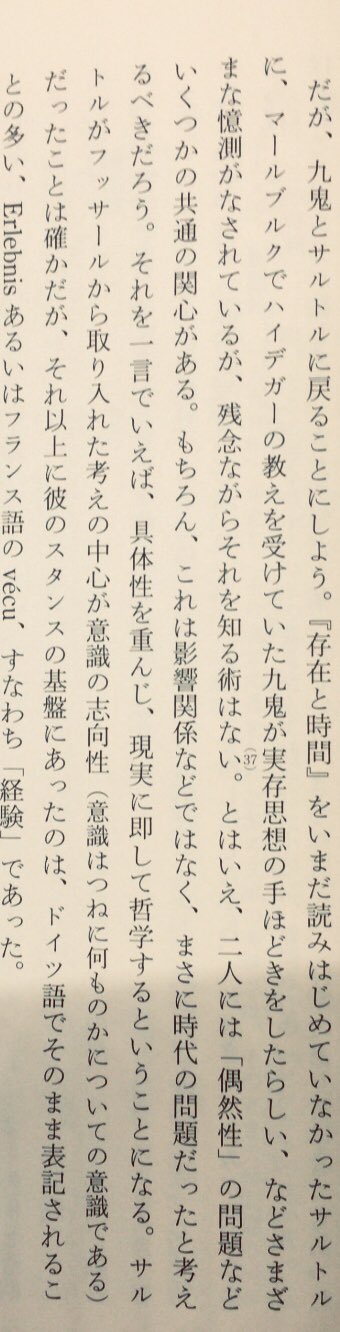 だが、九鬼とサルトルに戻ることにしよう。『存在と時間』をいまだ読みはじめていなかったサルトル
に、マールブルクでハイデガーの教えを受けていた九鬼が実存思想の手ほどきをしたらしい、などさまざ
まな憶測がなされているが、残念ながらそれを知る術はない(37)。とはいえ、二人には「偶然性」の問題など
いくつかの共通の関心がある。もちろん、これは影響関係などではなく、まさに時代の問題だったと考え
るべきだろう。それを一言でいえば、具体性を重んじ、現実に即して哲学するということになる。サル
トルがフッサールから取り入れた考えの中心が意識の志向性（意識はつねに何ものかについての意識である）
だったことは確かだが、それ以上に彼のスタンスの基盤にあったのは、ドイツ語でそのまま表記されるこ
との多い、Erlebnisあるいはフランス語のvécu、すなわち「経験」であった。